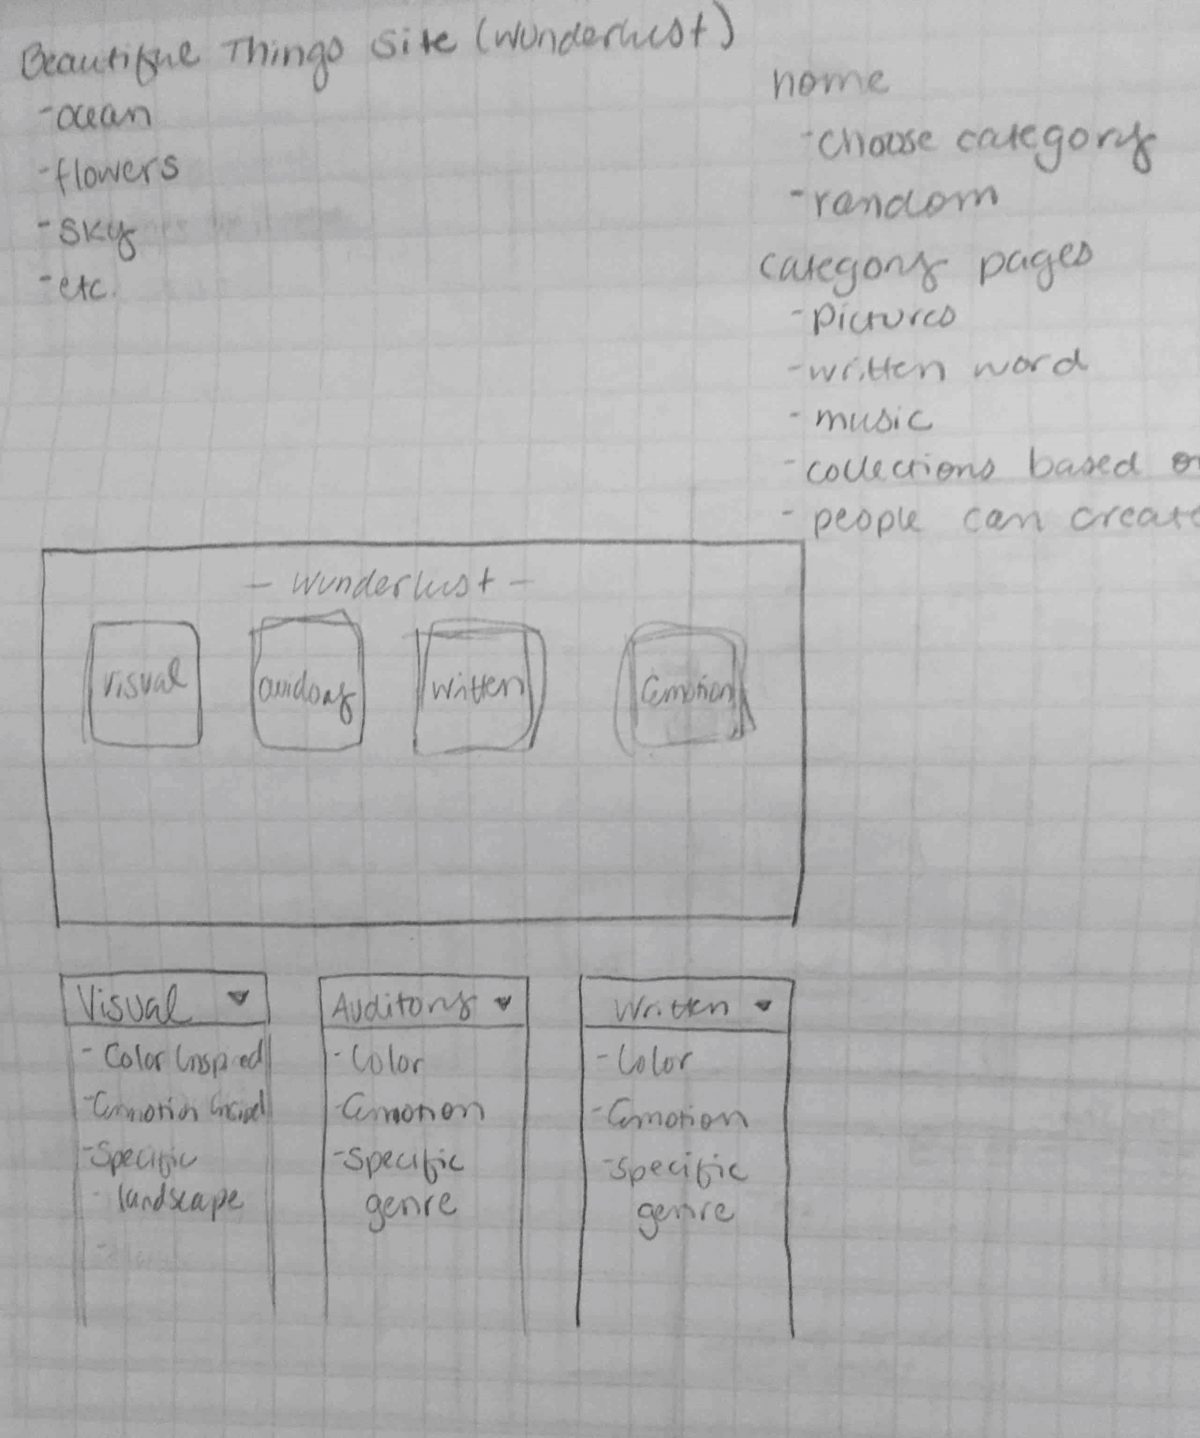 Beautiful Things Site (Wunderlust)
- ocean
- flowers
- sky
- etc.
home
- choose category
- random
category pages
- pictures
- written word
- music
- collections based
- people can create
- Wunderlust -
Visual
auidory
written
Emotion
Visual
- Color Inspired
- Emotion
- Specific
- landscape
Auditory
- Color
- Emotion
- Specific
genre
Written
- Color
- Emotion
- Specific
genre